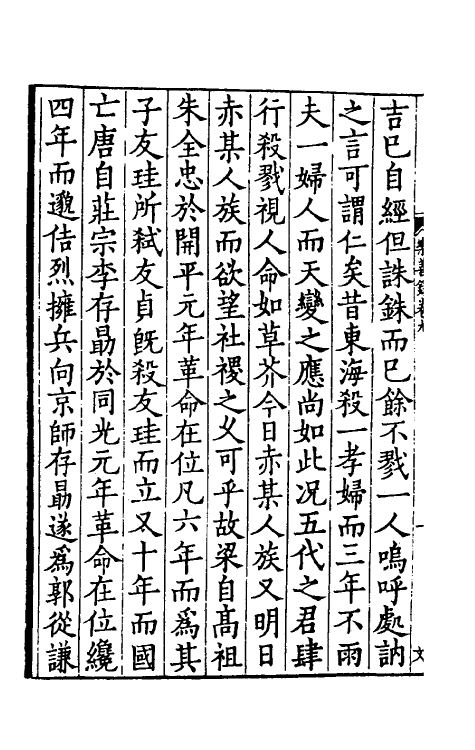 吉已自經但誅銖而已餘不戮一人嗚呼處訥
之言可謂仁矣昔東海殺一孝婦而三年不雨
夫一婦人而天變之應尚如此况五代之君肆
行殺戮視人命如草芥今日赤某人族又明日
赤某人族而欲望社禝之乆可乎故梁自髙祖
朱全忠於開平元年革命在位凡六年而爲其
子友珪所弑友貞旣殺友珪而立又十年而國
亡唐自莊宗李存朂於同光元年革命在位纔
四年而邈佶烈擁兵向京師存朂遂爲郭從謙